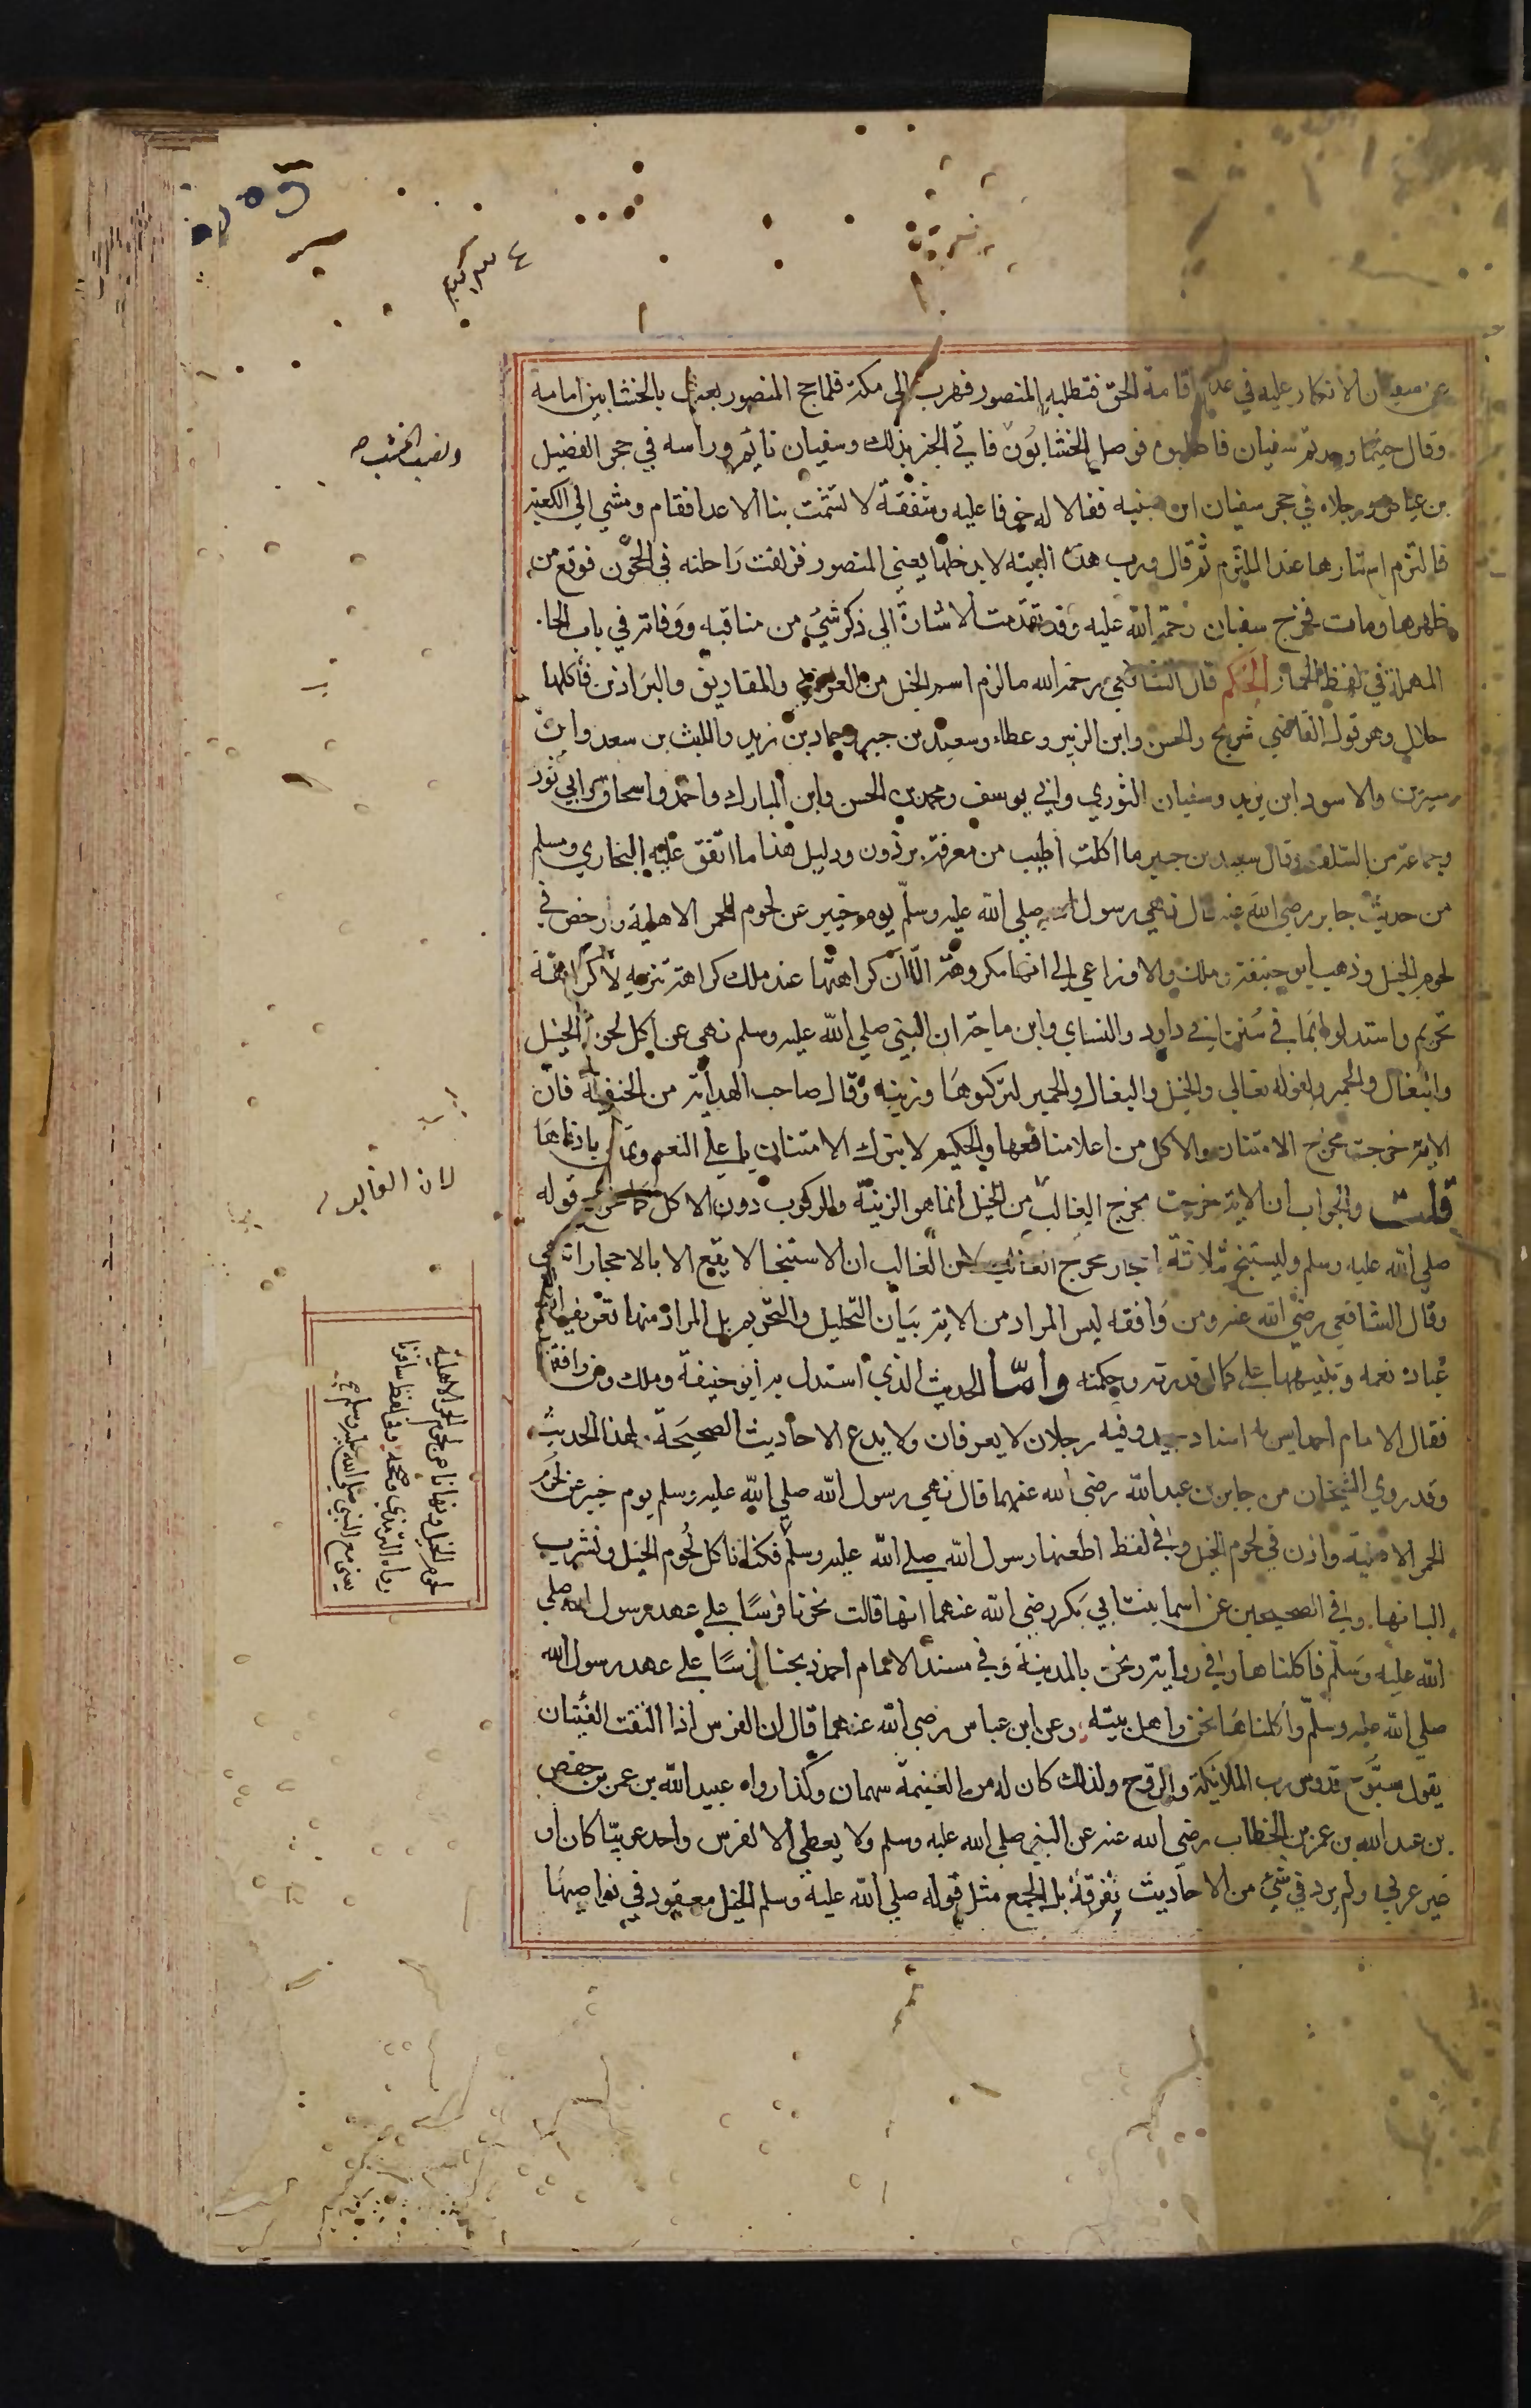 عن سفيان الانكار عليه في عدم اقامة الحق فتطلبه المنصور فهرب الى مكة فلما حج المنصور بعث بالخشابين امامه
وقال حيثما وجدتم سفيان فاصلبوه فوصل الخشابون فاتي الخبر بذلك وسفيان نايم وراسه في حجر الفضيل
بن عياض ورجلاه في حجر سفيان ابن عيينه فقالا له خوفا عليه وشفقة لا تشمت بنا الاعدا فقام ومشي الي الكعبة
فالتزم استارها عند الملتزم ثم قال ورب هذه البنيه لا يدخلها يعني المنصور فزلقت راحلته في الحجون فوقع من
ظهرها ومات فخرج سفيان رحمة الله عليه وقد تقدمت الاشارة الي ذكر شيء من مناقبه ووفاته في باب الحا
المهملة في لفظ الحمار الحكم قال الشافعي رحمه الله ما لزم اسم الخيل من العراب والمقاريف والبراذين فأكلها
حلال وهو قول القاضي شريح والحسن وابن الزبير وعطاء وسعيد بن جبير وحماد بن زيد والليث بن سعد وابن
سيرين والاسود ابن يزيد وسفيان الثوري وابي يوسف ومحمد بن الحسن وابن المبارك واحمد واسحاق وابي ثور
وجماعة من السلف وقال سعيد بن جبير ما اكلت اطيب من معرفة برذون ودليل هذا ما اتفق عليه البخاري ومسلم
من حديث جابر رضي الله عنه قال نهي رسول الله صلي الله عليه وسلم يوم خيبر عن لحوم الحمر الاهلية ورخص في
لحوم الخيل وذهب ابو حنيفة وملك والاوزاعي الي انها مكروهة الا ان كراهتها عند ملك كراهة تنزيه لا كراهة
تحريم واستدلوا بما في سنن ابي داود والنساي وابن ماجة ان النبي صلي الله عليه وسلم نهي عن اكل لحوم الخيل
والبغال والحمير ولقوله تعالي والخيل والبغال والحمير لتركبوها وزينه وقال صاحب الهداية من الحنفية فان
الاية خرجت مخرج الامتنان والاكل من اعلا منافعها والحكيم لا يترك الامتنان باعلي النعم ويمتن بادناها
قلت والجواب ان الاية خرجت مخرج الغالب من الخيل انما هو الزينة والركوب دون الاكل كما خرج قوله
صلي الله عليه وسلم وليستنج بثلاثة احجار مخرج الغالب لان الغالب ان الاستنجا لا يقع الا بالاحجار انتهي
وقال الشافعي رضي الله عنه ومن وافقه ليس المراد من الاية بيان التحليل والتحريم بل المراد منها تعريف الله
عباده نعمه وتنبيههم علي كمال قدرته وحكمته واما الحديث الذي استدل به ابو حنيفة وملك ومن وافقهما
فقال الامام احمد ليس له اسناد جيد وفيه رجلان لا يعرفان ولا يدع الاحاديث الصحيحة لهذا الحديث
وقد روي الشيخان من جابر بن عبد الله رضي الله عنهما قال نهي رسول الله صلي الله عليه وسلم يوم خيبر عن لحوم
الحمر الاهلية واذن في لحوم الخيل وفي لفظ اطعمنا رسول الله صلي الله عليه وسلم فكنا نأكل لحوم الخيل ونشرب
البانها وفي الصحيحين عن اسما بنت ابي بكر رضي الله عنهما انها قالت نحرنا فرسا علي عهد رسول الله صلي
الله عليه وسلم فاكلناها وفي رواية ونحن بالمدينة وفي مسند الامام احمد ذبحنا فرسا علي عهد رسول الله
صلي الله عليه وسلم واكلناها نحن واهل بيته وعن ابن عباس رضي الله عنهما قال ان الفرس اذا التقت الفئتان
يقول سبوح قدوس رب الملايكة والروح ولذلك كان له من الغنيمة سهمان وكذا رواه عبيد الله بن عمر بن حفص
بن عبد الله بن عمر بن الخطاب رضي الله عنه عن النبي صلي الله عليه وسلم ولا يعطي الا لفرس واحد عربيا كان او
غير عربي ولم يرد في شيء من الاحاديث تفرقة بل الجميع مثل قوله صلي الله عليه وسلم الخيل معقود في نواصيها
ونصب الخشب
لان الغالب
لحوم الخيل ونهانا عن لحوم الحمر الاهلية
رواه الترمذي وصححه وفي لفظ سافرنا
يعني مع النبي صلي الله عليه وسلم